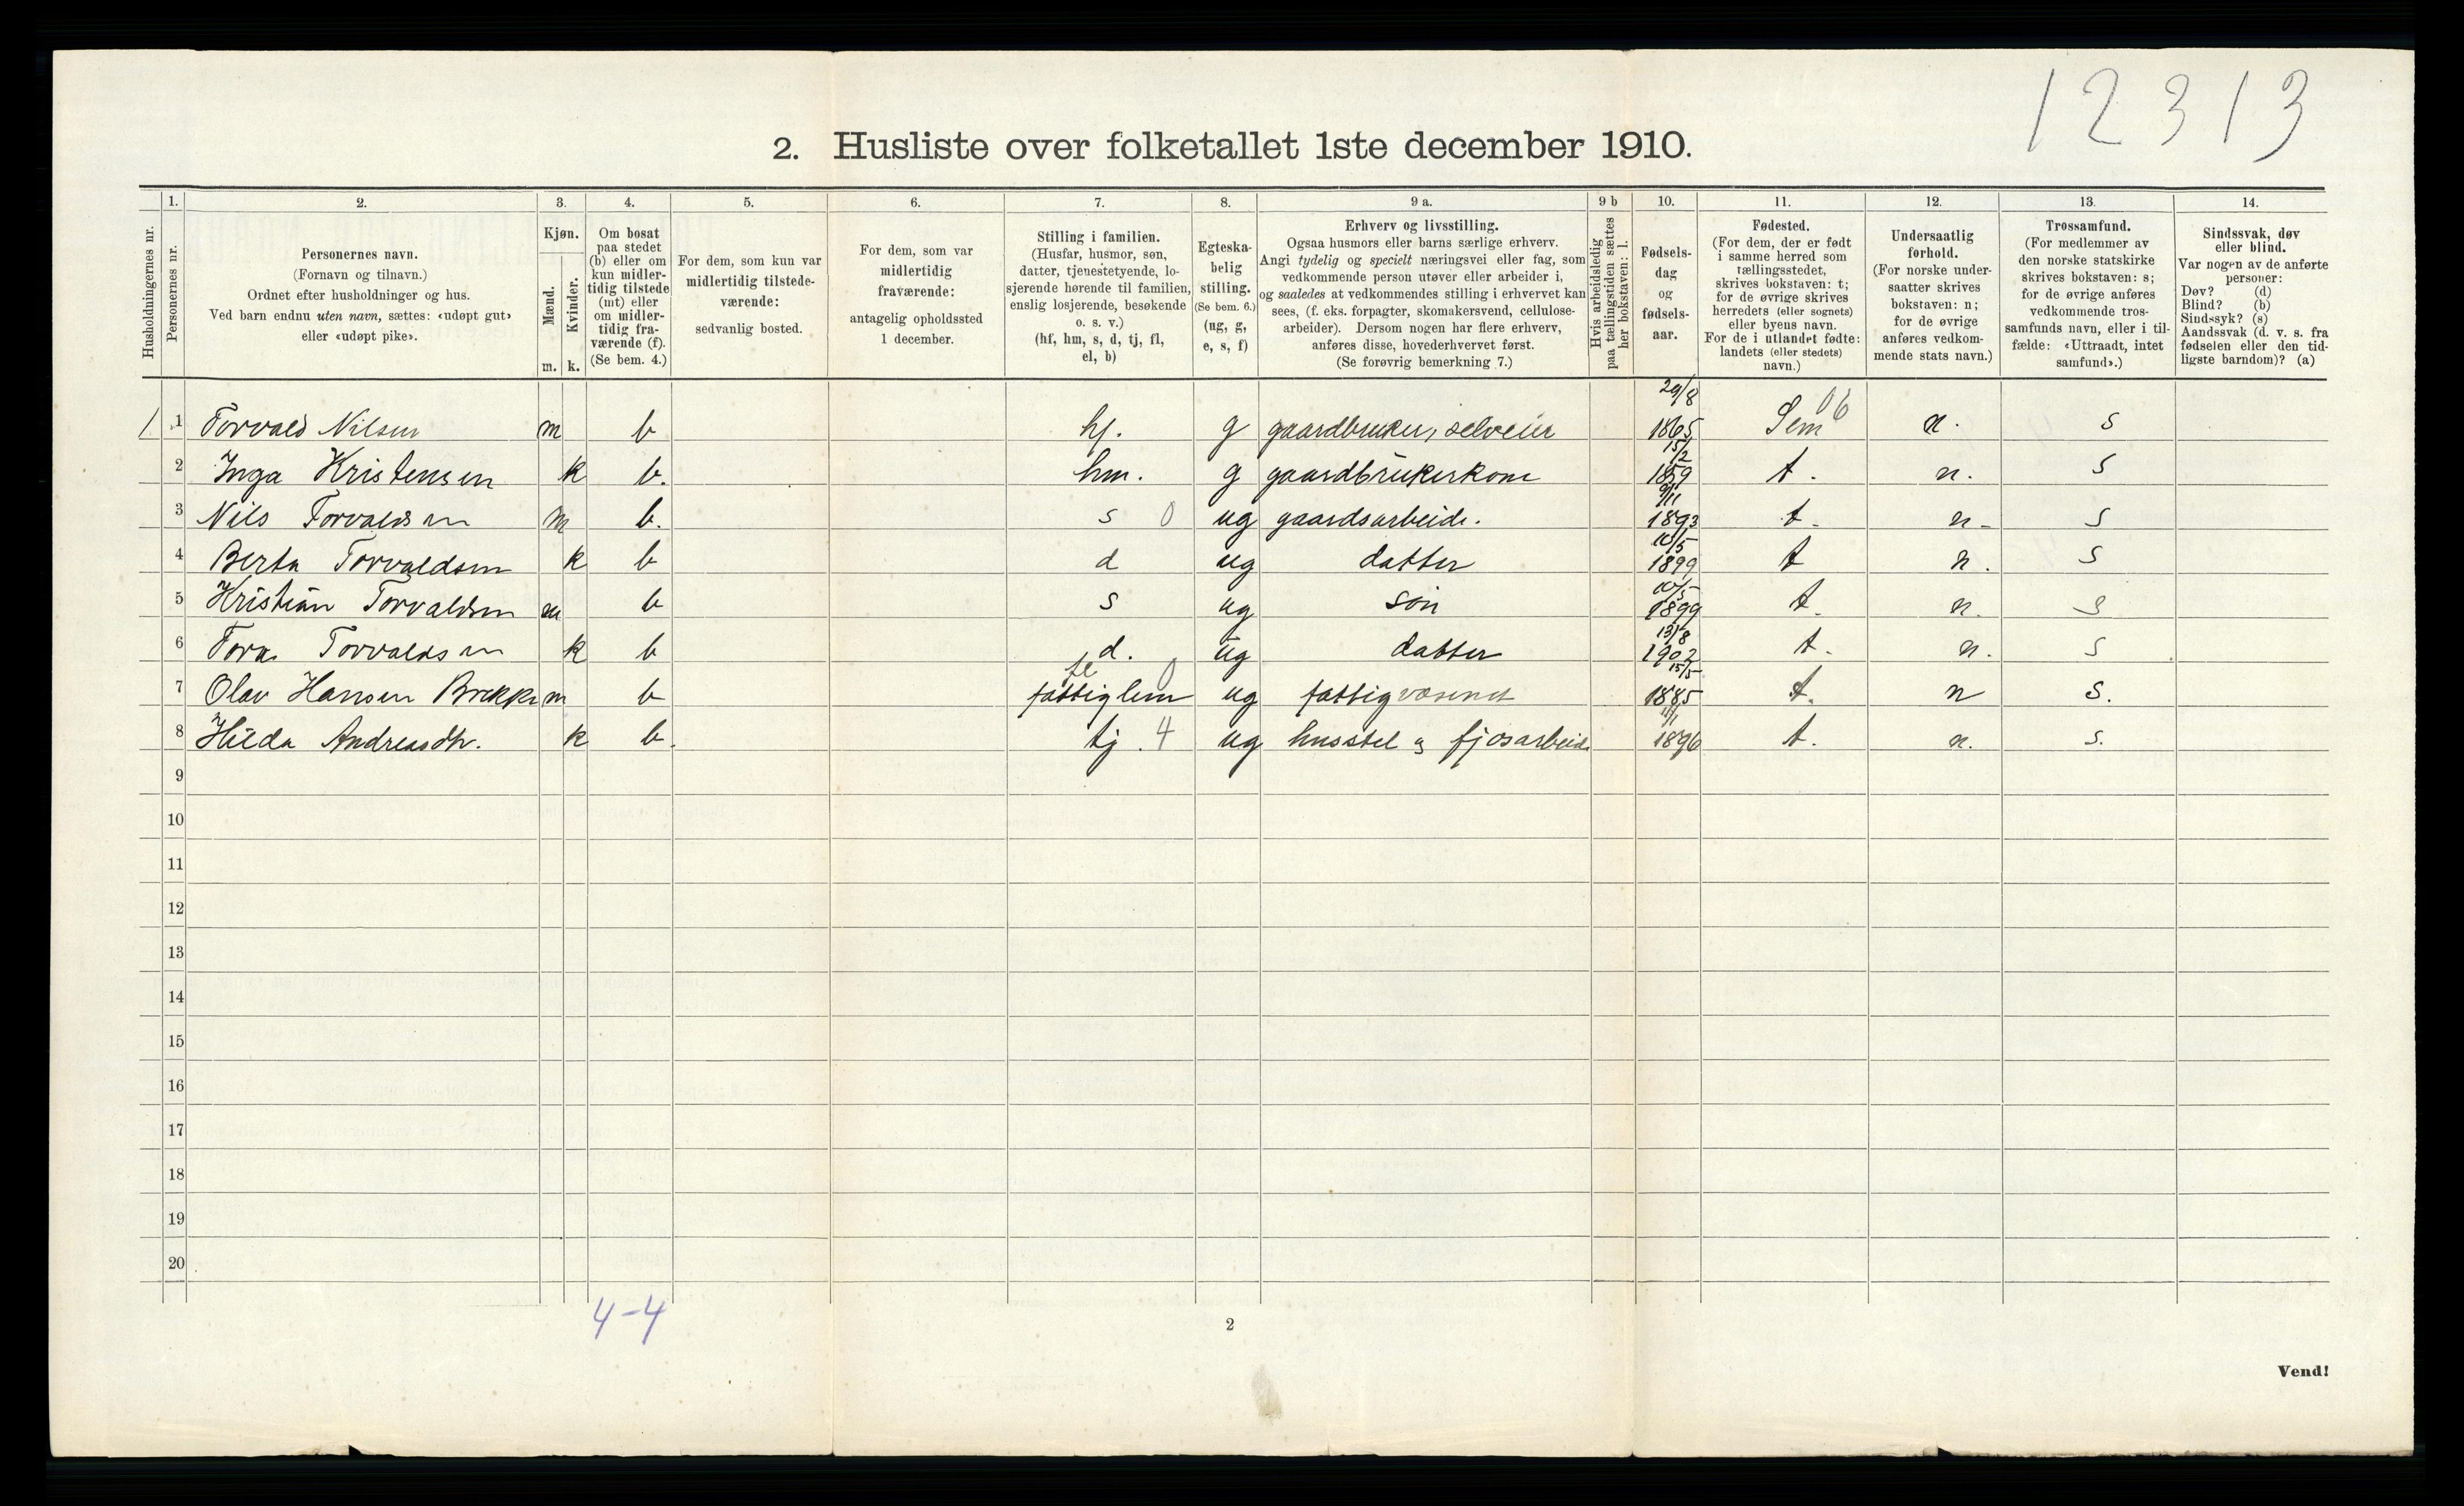 12313
2. Husliste over folketallet 1ste december 1910.
Husholdningernes nr.
1. Personernes nr.
2. Personernes navn. (Fornavn og tilnavn.) Ordnet efter husholdninger og hus. Ved barn endnu uten navn, sættes: «udøpt gut» eller «udøpt pike».
3. Kjøn. Mænd. m. Kvinder. k.
4. Om bosat paa stedet (b) eller om kun midlertidig tilstede (mt) eller om midlertidig fraværende (f). (Se bem. 4.)
5. For dem, som kun var midlertidig tilstedeværende: sedvanlig bosted.
6. For dem, som var midlertidig fraværende: antagelig opholdssted 1 december.
7. Stilling i familien. (Husfar, husmor, søn, datter, tjenestetyende, losjerende hørende til familien, enslig losjerende, besøkende o. s. v.) (hf, hm, s, d, tj, fl, el, b)
8. Egteskabelig stilling. (Se bem. 6.) (ug, g, e, s, f)
9 a. Erhverv og livsstilling. Ogsaa husmors eller barns særlige erhverv. Angi tydelig og specielt næringsvei eller fag, som vedkommende person utøver eller arbeider i, og saaledes at vedkommendes stilling i erhvervet kan sees, (f. eks. forpagter, skomakersvend, cellulosearbeider). Dersom nogen har flere erhverv, anføres disse, hovederhvervet først. (Se forøvrig bemerkning 7.)
9 b Hvis arbeidsledig paa tællingstiden sættes her bokstaven: l.
10. Fødselsdag og fødselsaar.
11. Fødested. (For dem, der er født i samme herred som tællingsstedet, skrives bokstaven: t; for de øvrige skrives herredets (eller sognets) eller byens navn. For de i utlandet fødte: landets (eller stedets) navn.)
12. Undersaatlig forhold. (For norske undersaatter skrives bokstaven: n; for de øvrige anføres vedkommende stats navn.)
13. Trossamfund. (For medlemmer av den norske statskirke skrives bokstaven: s; for de øvrige anføres vedkommende trossamfunds navn, eller i tilfælde: «Uttraadt, intet samfund».)
14. Sindssvak, døv eller blind. Var nogen av de anførte personer: Døv? (d) Blind? (b) Sindssyk? (s) Aandssvak (d. v. s. fra fødselen eller den tidligste barndom)? (a)
1 1 Torvald Nilsen m b hf. g gaardbruker, selveier 29/8 1865 Sem 06 n. s
2 Inga Kristensen k b. hm. g gaardbrukerkone 15/2 1859 t. n. s
3 Nils Torvaldsen m b. s 0 ug gaardsarbeide. 9/11 1893 t. n- s
4 Berta Torvaldsen k b d ug datter 10/5 1899 t n. s
5 Kristian Torvaldsen m b s ug søn 10/5 1899 t. n. s
6 Tora Torvaldsen k b d. ug datter 13/8 1902 t. n. s
7 Olav Hansen Brekke m b fattiglem fl 0 ug fattigvæsenet 15/5 1885 t. n s.
8 Hilda Andreasdtr. k b. tj. 4 ug husstel og fjøsarbeide 11/1 1896 t. n. s.
9
10
11
12
13
14
15
16
17
18
19
20
4-4
2
Vend!